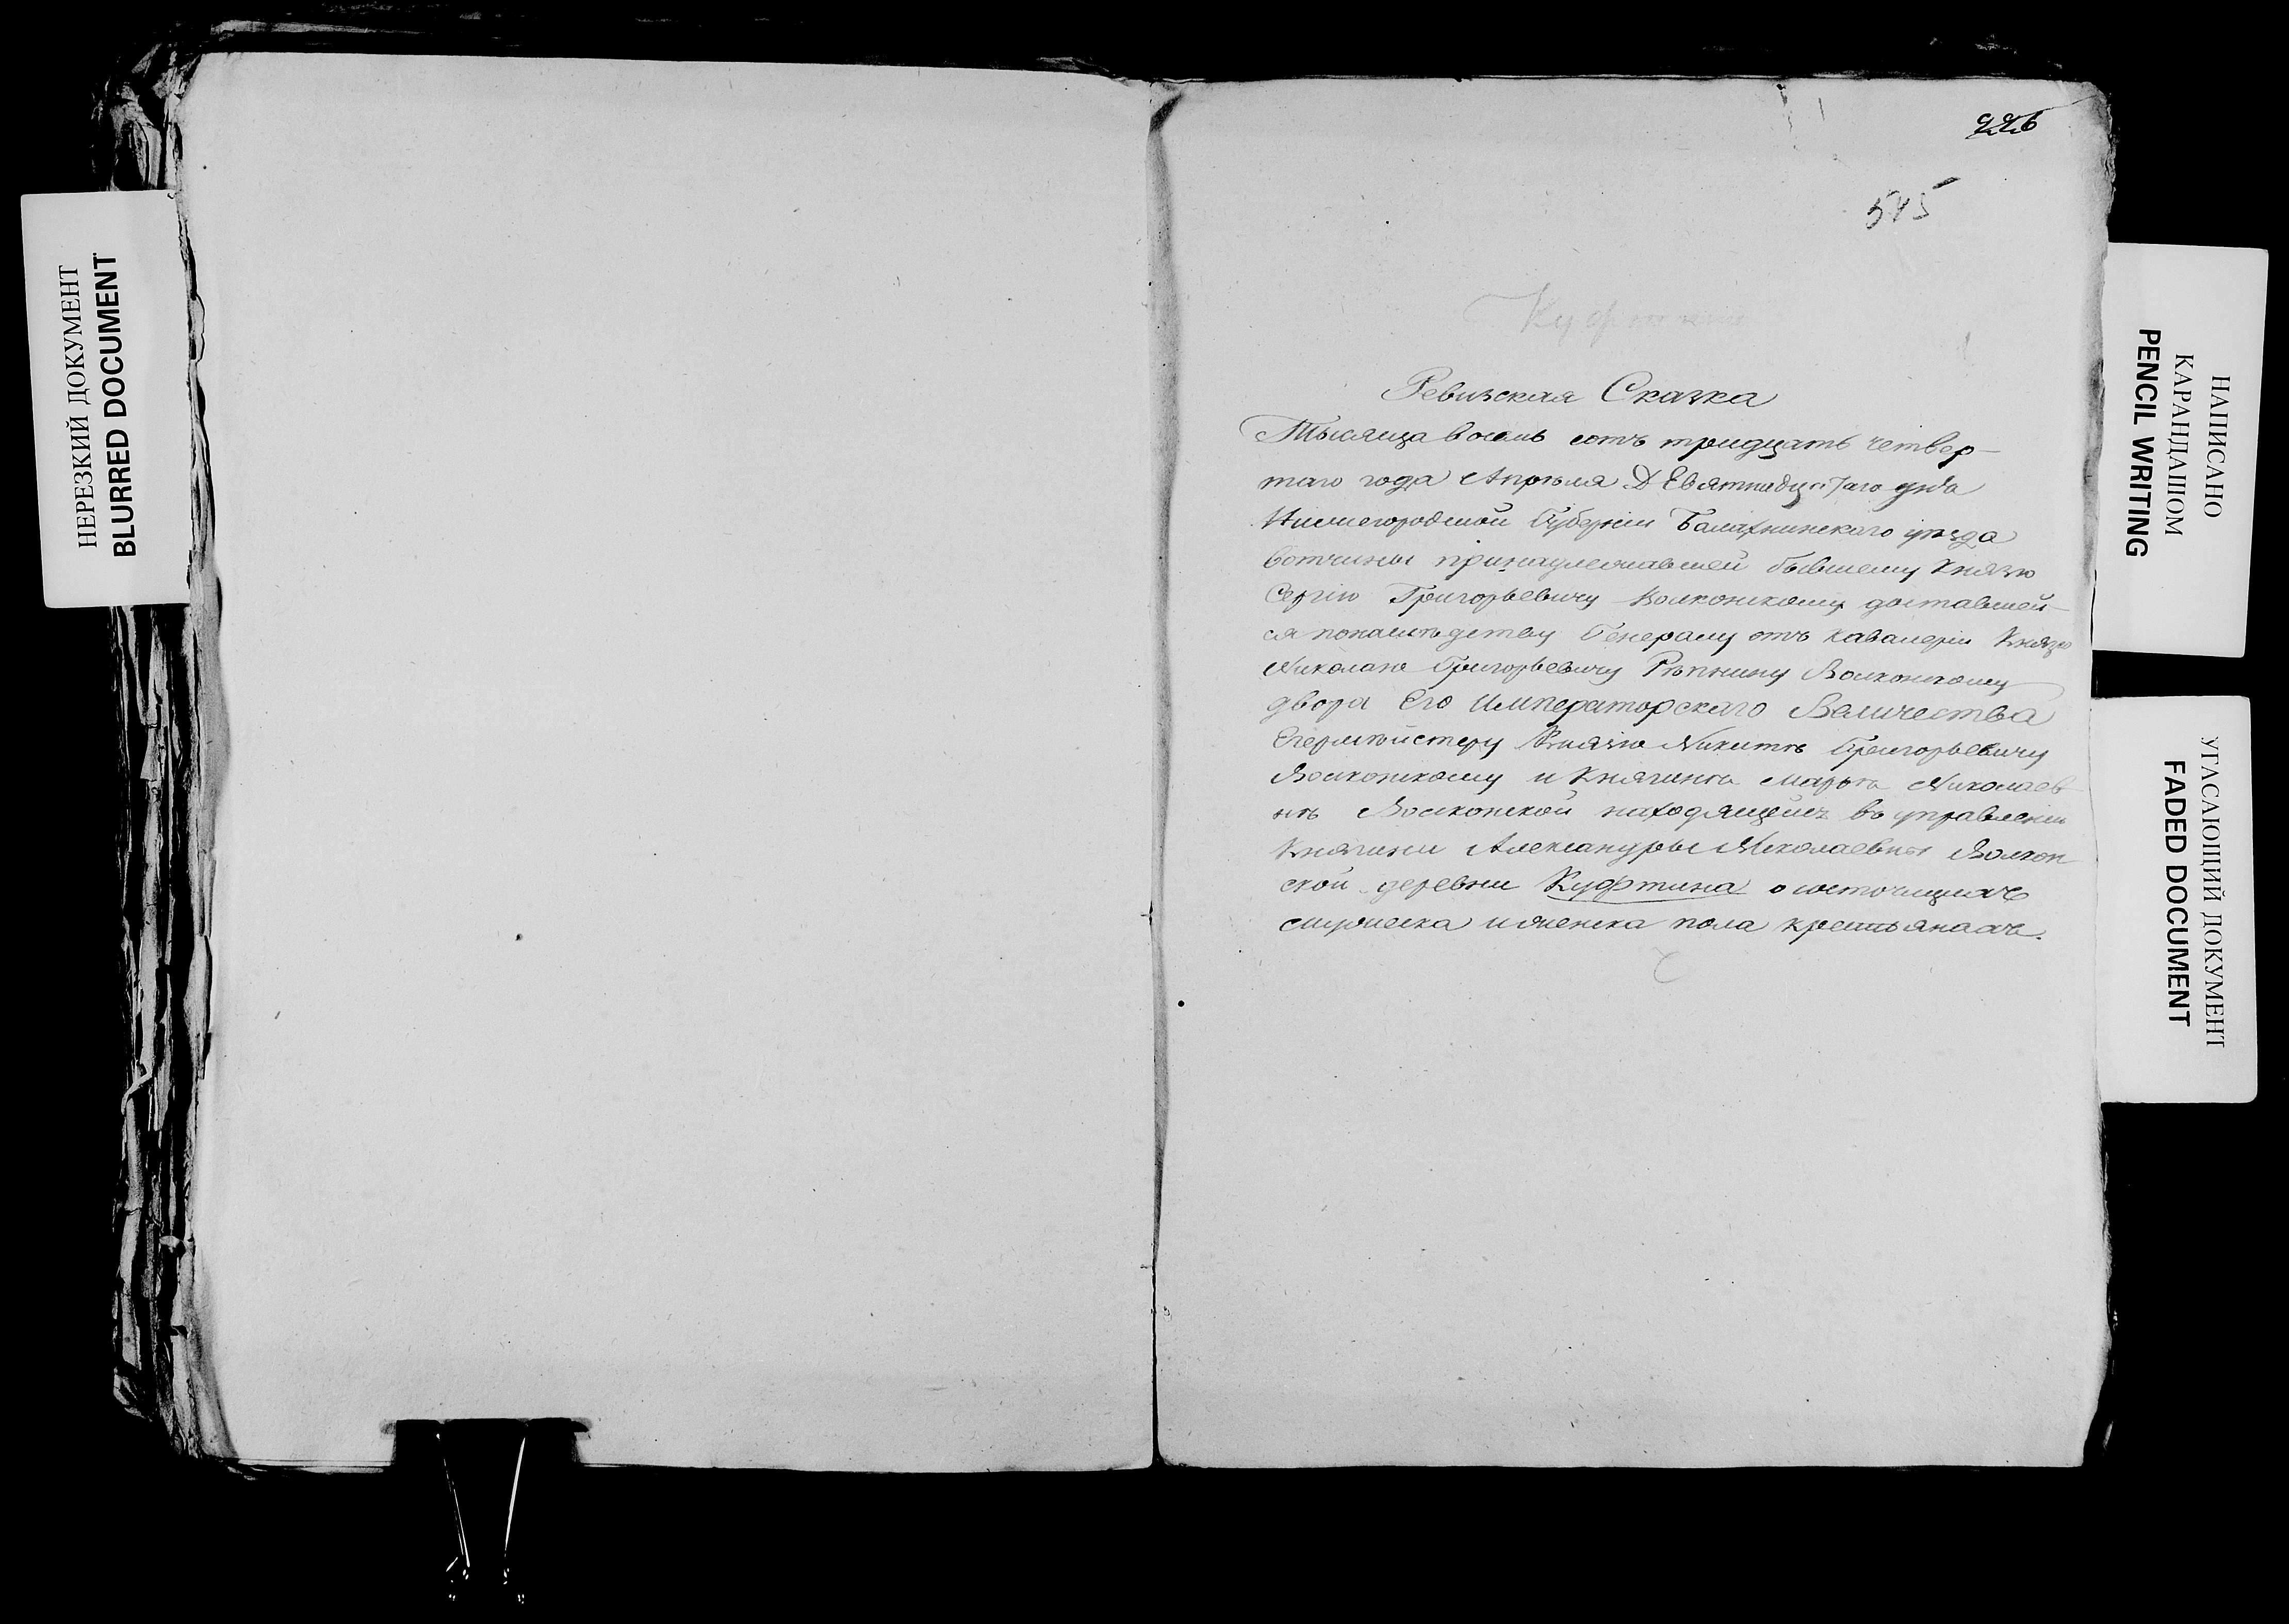 НЕРЕЗКИЙ ДОКУМЕНТ
BLURRED DOCUMENT
226
545
Ревизская Сказка
Тысяща восемь сотъ тридцать четвер-
таго года Апреля ДЕвятнадцатаго дня
Нижегородской Губернiи Балахнинскаго уезда
вотчины принадлежавшей бывшему Князю
Сергiю Григорьевичу Волконскому доставшей-
ся понаследству Генералу отъ кавалерiи Князю
Николаю Григорьевичу Репнину Волконскому
двора Его Императорскаго Величества
Егермейстеру Князю Никите Григорьевичу
Волконскому и Княгине Марье Николаев
не Волконской находящейся въ управленiи
Княгини Александры Николаевны Волкон
ской деревни Куфтина о состоящихъ
мужеска и женска пола крестьянахъ.
НАПИСАНО
КАРАНДАШОМ
PENCIL WRITING
УГАСАЮЩИЙ ДОКУМЕНТ
FADED DOCUMENT